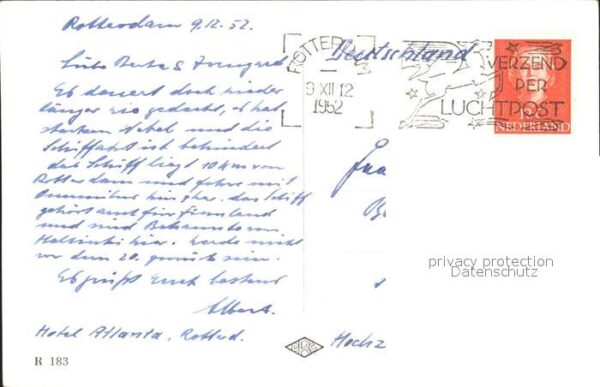 Rotterdam 9.12.52.
Liebe Berta &
Es dauert doch wieder
länger wie gedacht, es hat
starken Nebel und die
Schiffahrt ist behindert
das Schiff liegt 10 km von
Rotterdam und fahre mit
Omnibus hin & her. das Schiff
gehört auch für Finnland
und sind Bekannte von
Helsinki hier. werde nicht
vor dem 20. zurück sein.
Es grüßt Euch bestens
Albert.
Hotel Atlanta, Rotterd.
R 183
Deutschland
ROTTERDAM
9 XII 12
1952
VERZEND
PER
LUCHTPOST
NEDERLAND
Frau
privacy protection
Datenschutz
Hochz